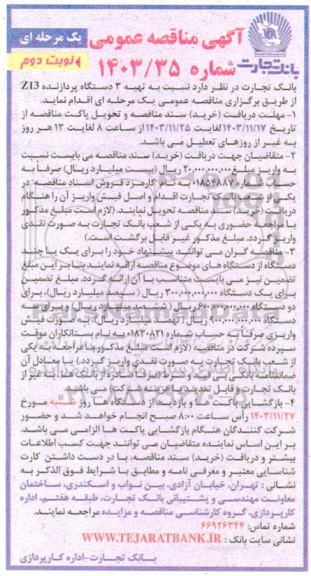 آگهی مناقصه عمومی
یک مرحله ای
شماره ۱۴۰۳/۳۵
نوبت دوم
بانک تجارت
بانک تجارت در نظر دارد نسبت به تهیه ۳ دستگاه پردازنده Z13
از طریق برگزاری مناقصه عمومی یک مرحله ای اقدام نماید.
۱- مهلت دریافت (خرید) سند مناقصه و تحویل پاکت مناقصه از
تاریخ ۱۴۰۳/۱۱/۱۷ لغایت ۱۴۰۳/۱۱/۲۵ از ساعت ۸ لغایت ۱۳ هر روز
به غیر از روزهای تعطیل می باشد.
۲- متقاضیان جهت دریافت (خرید) سند مناقصه می بایست نسبت
به واریز مبلغ ۲۰،۰۰۰،۰۰۰ ریال (بیست میلیارد ریال) صرفاً به
حساب شماره به نام کارمزد فروش اسناد مناقصه در
یکی از شعب بانک تجارت اقدام و اصل فیش واریز آن را هنگام
دریافت (خرید) سند مناقصه تحویل نمایند. (لازم است مبلغ مذکور
با مراجعه حضوری به یکی از شعب بانک تجارت به صورت نقدی
واریز گردد. مبلغ مذکور غیر قابل برگشت است.)
۳- مناقصه گران می توانند پیشنهاد خود را برای یک یا چند
دستگاه از دستگاه های موضوع مناقصه ارائه نمایند بنابراین مبلغ
تضمین نیز می بایست متناسب با آن ارائه گردد. مبلغ تضمین
برای یک دستگاه ریال میلیارد ریال)، برای
دو دستگاه ریال میلیارد ریال) و برای سه
دستگاه ریال میلیارد ریال) به صورت فیش
واریزی صرفاً به حساب شماره ۰۱۸۳۰۸۲۱ به نام بستانکاران موقت
سپرده شرکت در مناقصه (لازم است مبلغ مذکور با مراجعه به یکی
از شعب بانک تجارت به صورت نقدی واریز گردد) یا معادل آن
ضمانتنامه بانکی بی قید و شرط صادره از بانک ها به غیر از
بانک تجارت و قابل تمدید برای شرکت می باشد.
۴- بازگشایی پاکت ها و بازدید از دستگاه ها روز شنبه مورخ
۱۴۰۳/۱۱/۲۷ رأس ساعت ۸:۰۰ صبح انجام خواهد شد و حضور
شرکت کنندگان هنگام بازگشایی پاکت ها الزامی می باشد.
بر این اساس نماینده متقاضیان می توانند جهت کسب اطلاعات
بیشتر و دریافت (خرید) سند مناقصه، با در دست داشتن کارت
شناسایی معتبر و معرفی نامه و مطابق با شرایط فوق الذکر به
نشانی : تهران، خیابان آزادی، بین نواب و اسکندری، ساختمان
معاونت مهندسی و پشتیبانی بانک تجارت، طبقه هفتم، اداره
کارپردازی، گروه کارشناسی مناقصه و مزایده مراجعه نمایند.
شماره تماس: ۶۶۹۲۶۳۴۴
نشانی سایت بانک : WWW.TEJARATBANK.IR
بانک تجارت-اداره کارپردازی